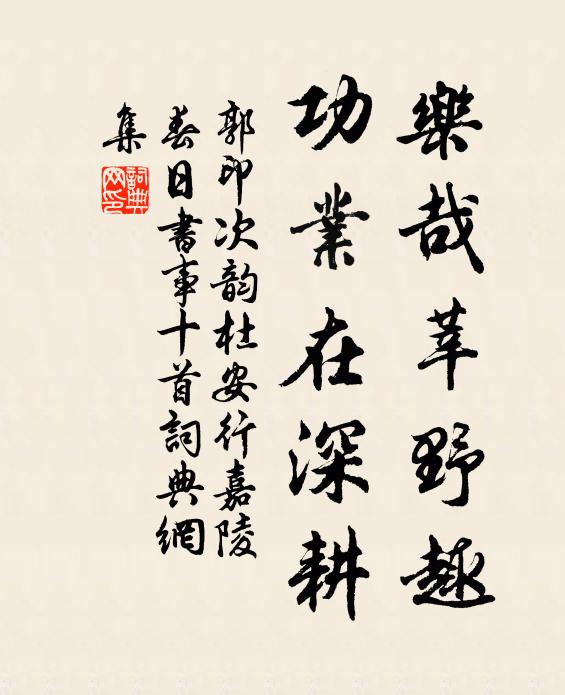 樂哉莘野趣
功業在深耕
郭印次韵杜安行嘉陵
春日書事十首詞典網
集
詞典
网印